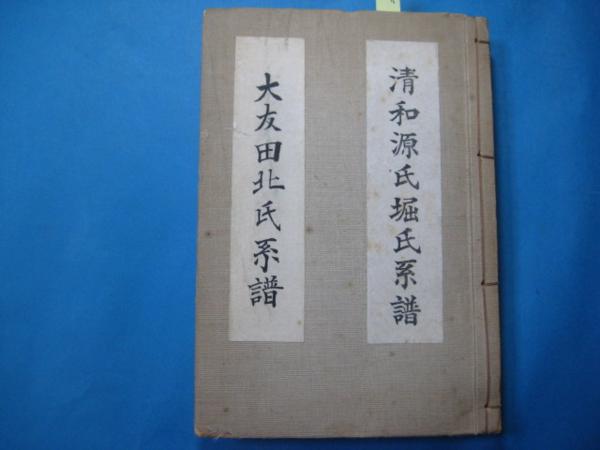 清和源氏堀氏系譜
大友田北氏系譜